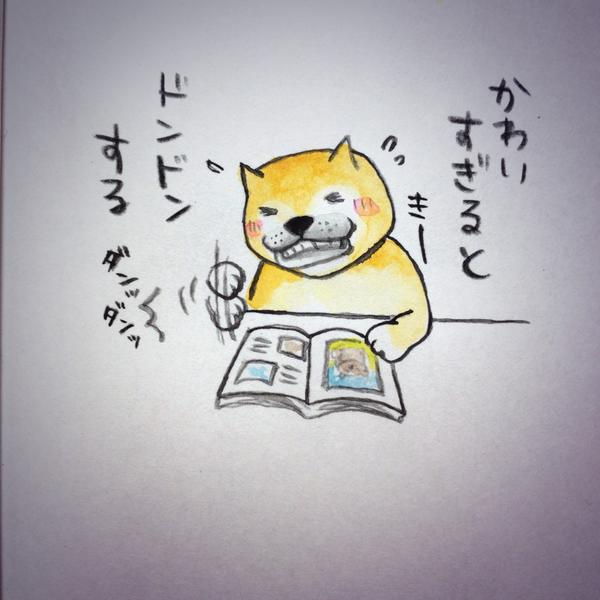 かわい
すぎると
きー
ドンドン
する
ダンッ
ダンッ